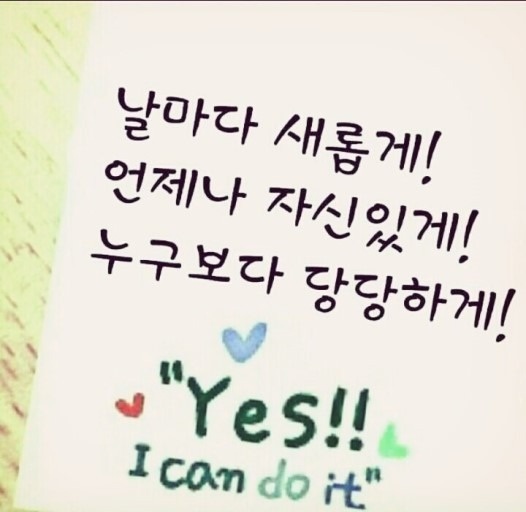 날마다 새롭게!
언제나 자신있게!
누구보다 당당하게!
"Yes!!
I can do it"